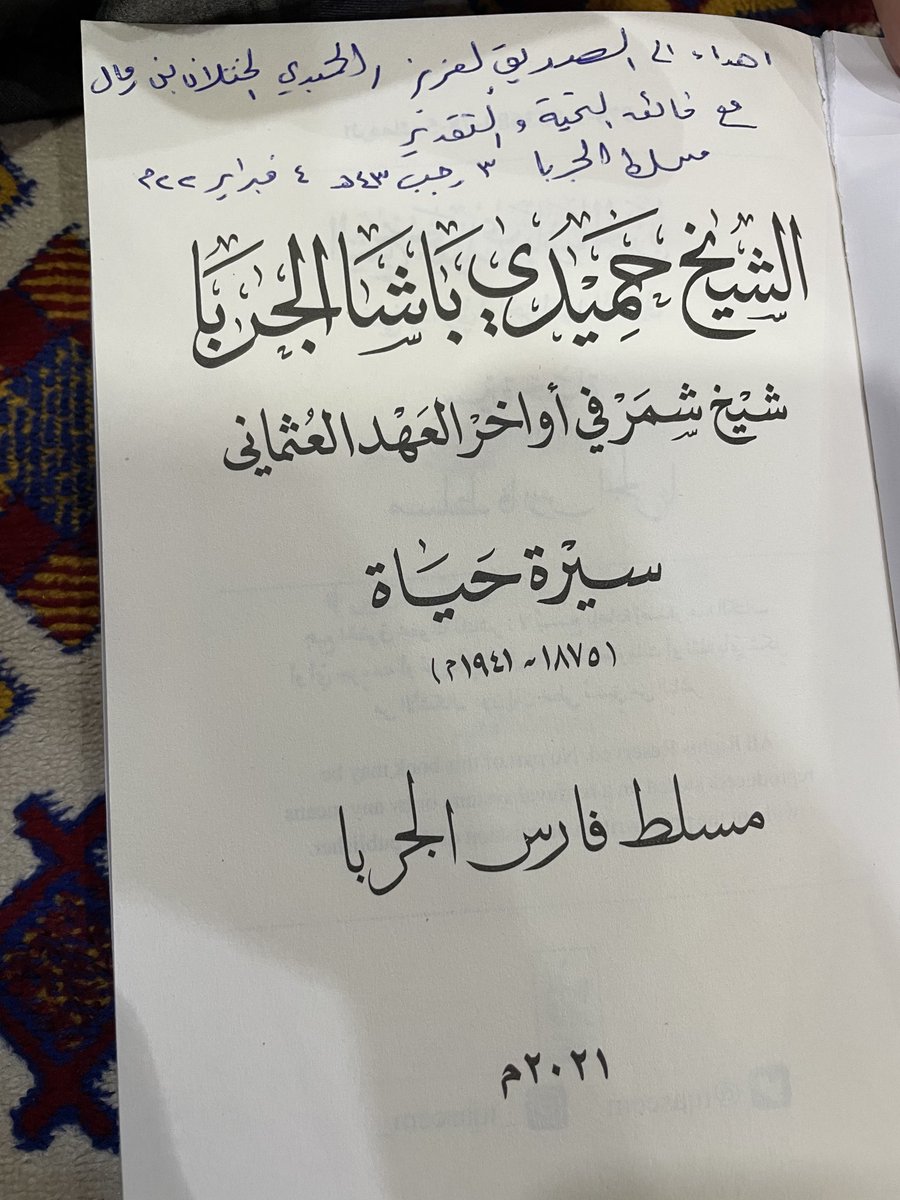 اهداء الى الصديق لعزيز الحميدي الختلان بن رمال
مع فائق التحية والتقدير
مسلط الجربا ٣ رجب ٤٣هـ ٤ فبراير ٢٢م
الشيخ حميدي باشا الجربا
شيخ شمر في أواخر العهد العثماني
سيرة حياة
(١٨٧٥ - ١٩٤١م)
مسلط فارس الجربا
٢٠٢١م